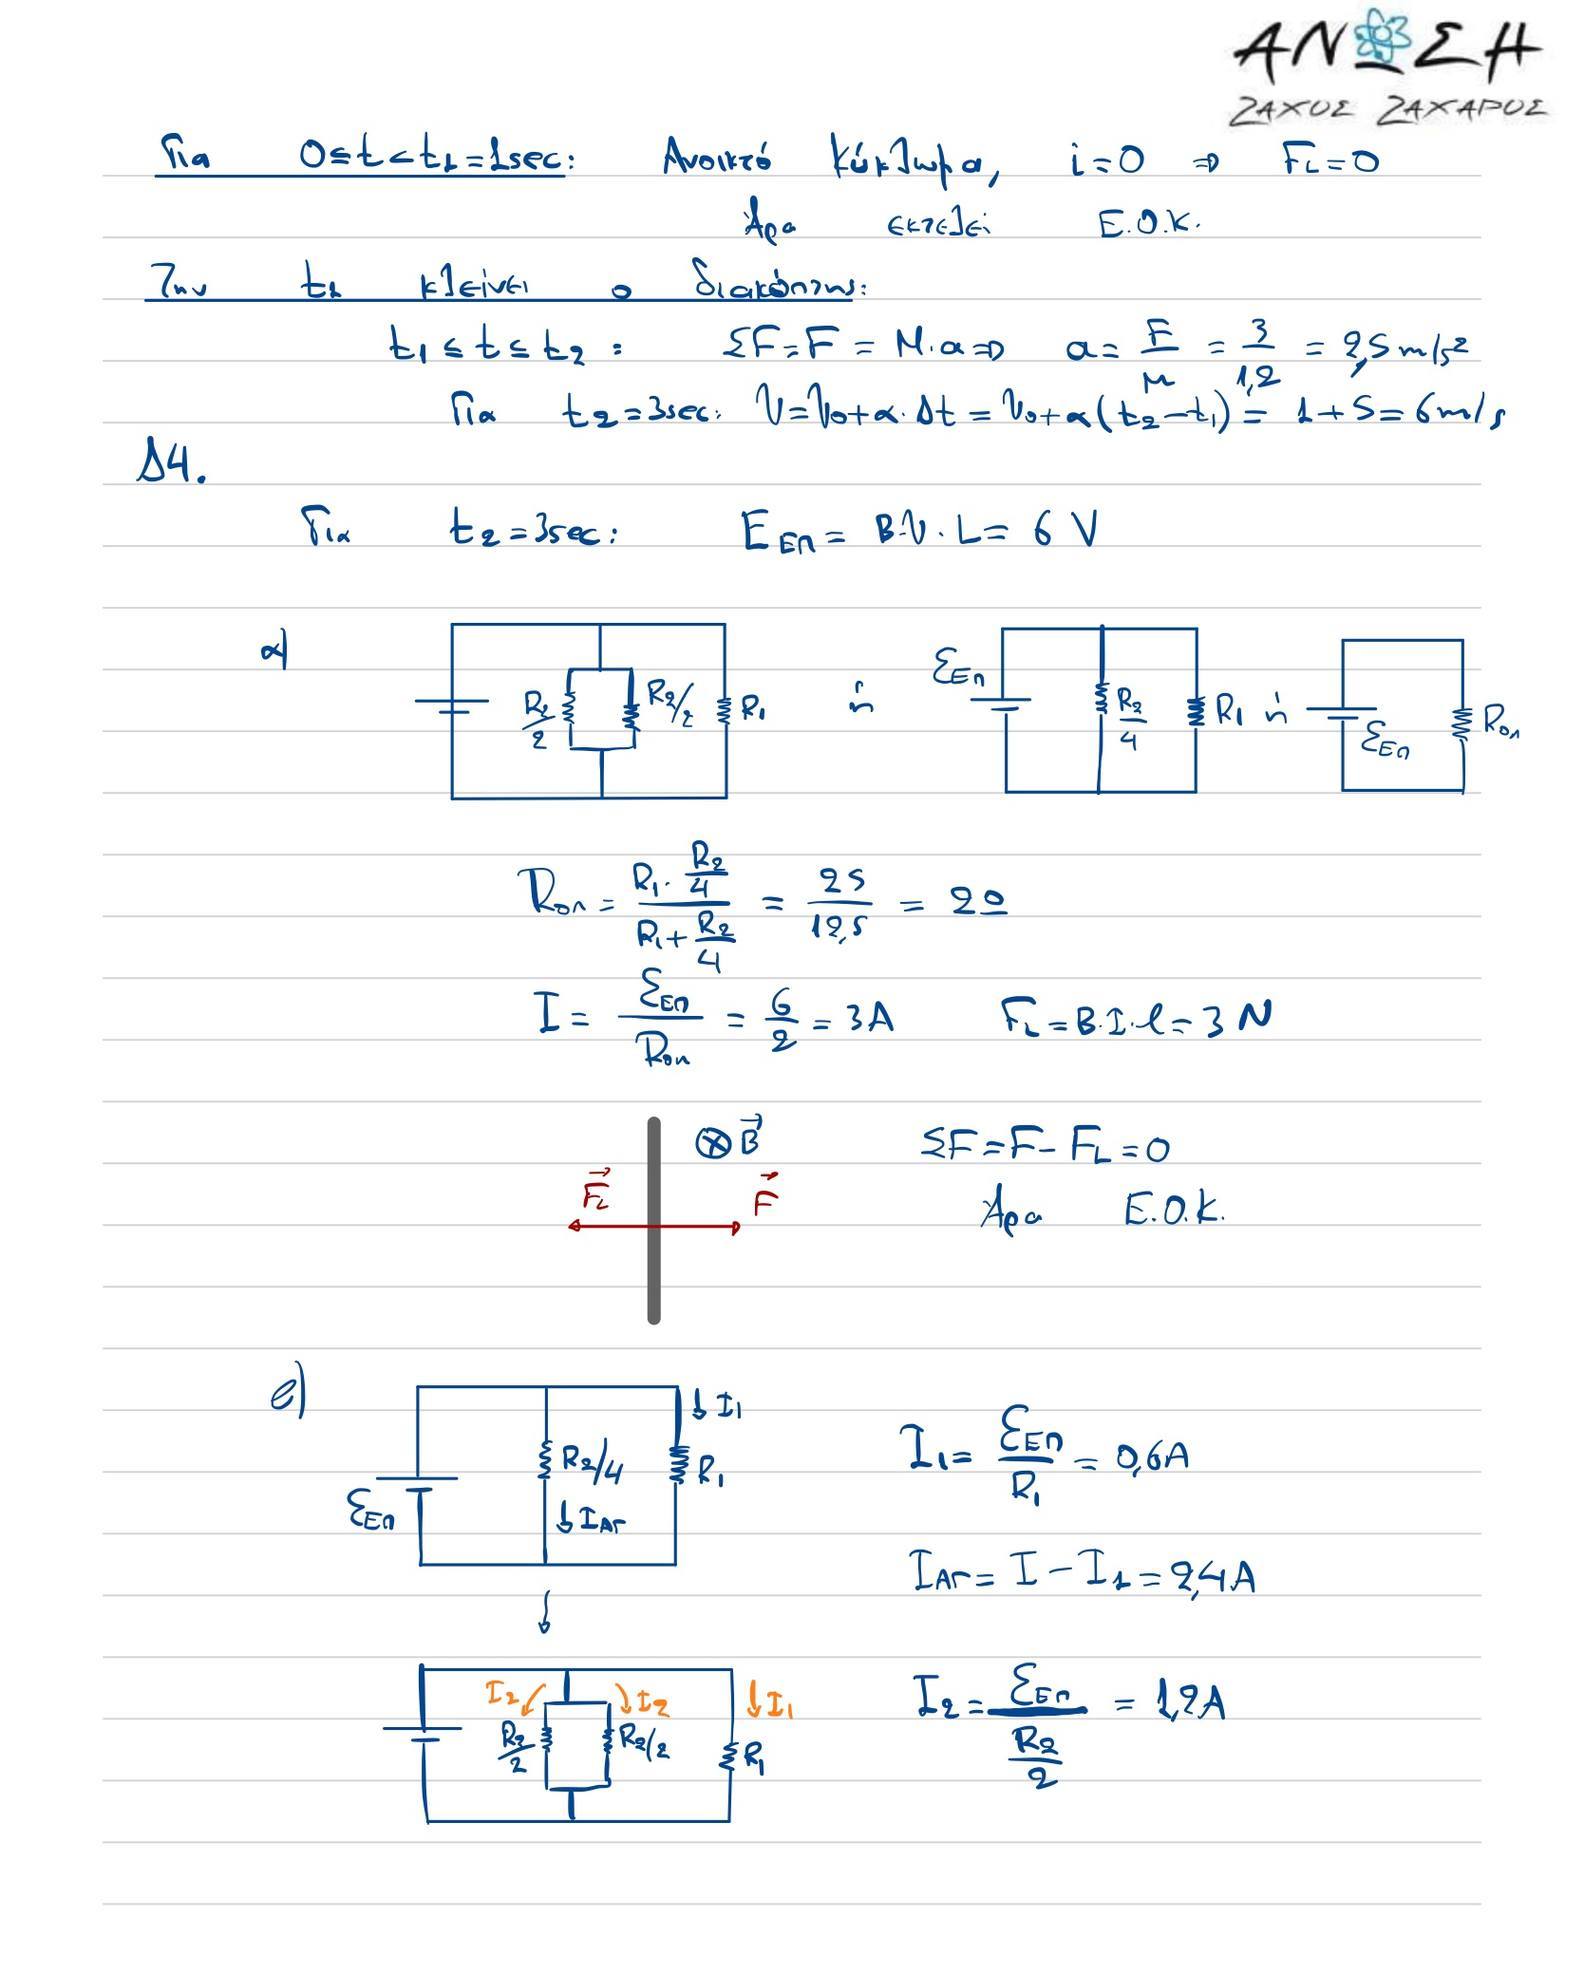 ΑΝΩΣΗ
ΖΑΧΟΣ ΖΑΧΑΡΟΣ
Για 0≤t<t₁=1sec: Ανοικτό κύκλωμα, i=0 ⇒ F_L=0
Άρα εκτελεί Ε.Ο.Κ.
Την t₁ κλείνει ο διακόπτης:
t₁≤t≤t₂: ΣF=F=M·α⇒ α=F/M=3/1,2=2,5m/s²
Για t₂=3sec: V=V₀+α·Δt=V₀+α(t₂-t₁)=1+5=6m/s
Δ4.
Για t₂=3sec: E_ΕΠ=B·V·L=6 V
α)
R₂/2 R₂/2 R₁ ή Ɛ_ΕΠ R₂/4 R₁ ή Ɛ_ΕΠ R_ολ
R_ολ=(R₁·R₂/4)/(R₁+R₂/4)=25/12,5=2Ω
I=Ɛ_ΕΠ/R_ολ=6/2=3A F_L=B·I·l=3 N
⊗B⃗ ΣF=F-F_L=0
F⃗_L F⃗ Άρα Ε.Ο.Κ.
β)
Ɛ_ΕΠ R₂/4 I_ΑΓ I₁ R₁ I₁=Ɛ_ΕΠ/R₁=0,6A
I_ΑΓ=I-I₁=2,4A
I₂ I₂ I₁ R₂/2 R₂/2 R₁ I₂=Ɛ_ΕΠ/(R₂/2)=1,2A